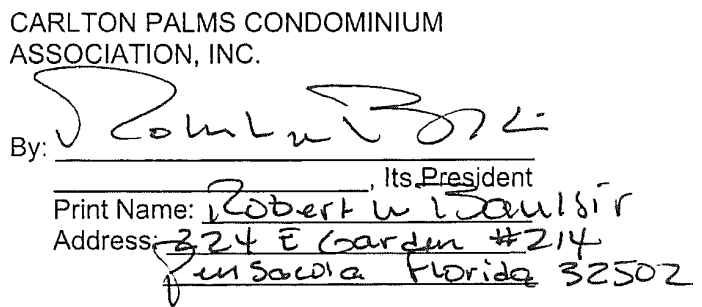 CARLTON PALMS CONDOMINIUM
ASSOCIATION, INC.
By:
, Its President
Print Name: Robert W
Address: 224 E Garden #214
Pensacola Florida 32502